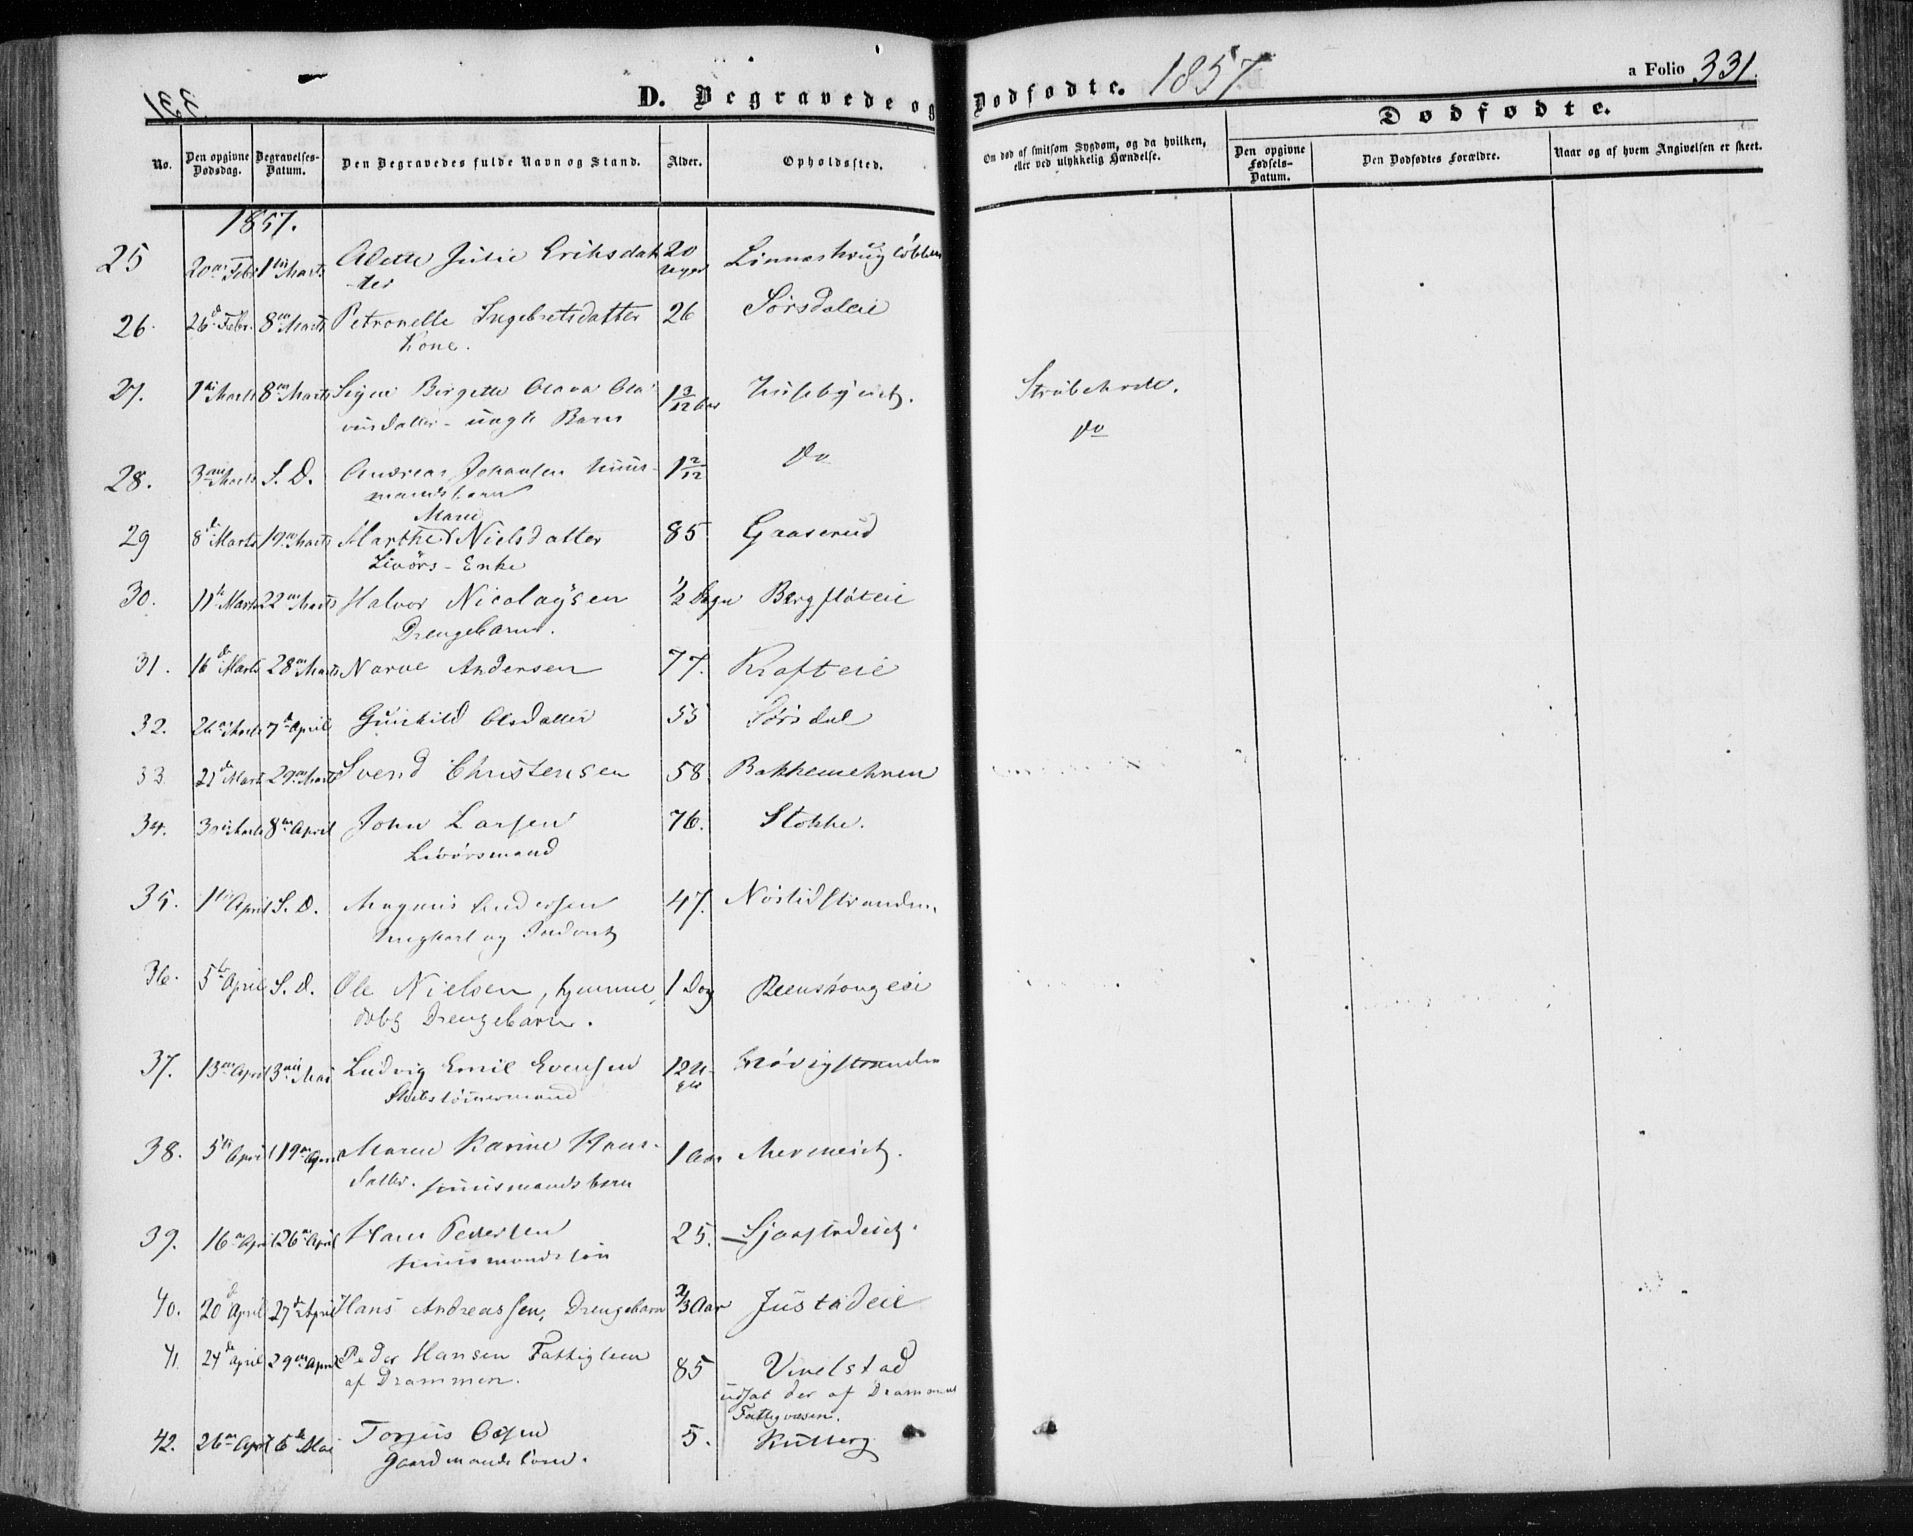 D. Begravede og Dodfodte. 1857.
a Folio 331.
331
Dodfodte.
No.
Den opgivne Dodsdag.
Begravelses-Datum.
Den Begravedes fulde Navn og Stand.
Alder.
Opholdssted.
Om dod af smitsom Sygdom, og da hvilken, eller ved ulykkelig Hændelse.
Den opgivne Fodsels-Datum.
Den Dodfodtes Forældre.
Naar og af hvem Angivelsen er skeet.
1857.
25 20de Febr 1ste Marts Julie Eriksdat- 20
ter Uger
26. 26de Febr. 8de Marts Petronelle Ingebretsdatter 26 Sørsdaleie
Kone.
27. 1ste Marts 8de Marts Birgitte Olava Ola- 1 3/12 Aar Husebyeiet. Strubehoste.
vusdatter - uægte Barn
28. 3die Marts S. D. Andreas Johansen Huus- 1 2/12 do do
mandsbarn
Marie
29 8de Marts 19de Marts Marthe Nielsdatter 85 Gaaserud
Livørs-Enke
30. 11te Marts 22de Marts Halvor Nicolaysen 1/2 Døgn Bergfløteie
Drengebarn.
31. 16de Marts 28de Marts Narve Andersen 77. Krafteie
32. 26de Marts 7de April Gunhild Olsdatter 55 Sørsdal
33 21de Marts 29de Marts Svend Christensen 58. Bakkemehren
34. 30te Marts 8de April John Larsen 76. Stokke.
Livørsmand
35. 1ste April S. D. Magnus Andersen 47. Nøstedstranden
Ungkarl og
36. 5te April S. D. Ole Nielsen, hjemme- 1 Dag Reenskougeie
døbt Drengebarn.
37. 13de April 3die Mai Ludvig Emil Evensen 12 U-
Skibstømmermand ger
38. 5te April 19de April Maren Karine Hans- 1 Aar
datter. Huusmandsbarn
39. 16de April 26de April Hans Pedersen 25.
Huusmandssøn
40. 20de April 27de April Hans Andreassen, Drengebarn 2/3 Aar Justadeie
41. 24de April 29de April Peder Hansen Fattiglem 85 Vivelstad
af Drammen. udsat der af Drammens
Fattigvæsen.
42. 26de April 6te Mai Torjus Olsen 5. Kutterg
Gaardmands Søn.